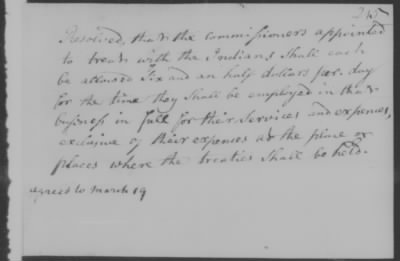 215
Resolved, that the commissioners appointed
to treat with the Indians shall each
be allowed Six and an half dollars per. day
for the time they shall be employed in that
business in full for their services and expences,
exclusive of their expences at the place or
places where the treaties shall be held.
agreed to March 19